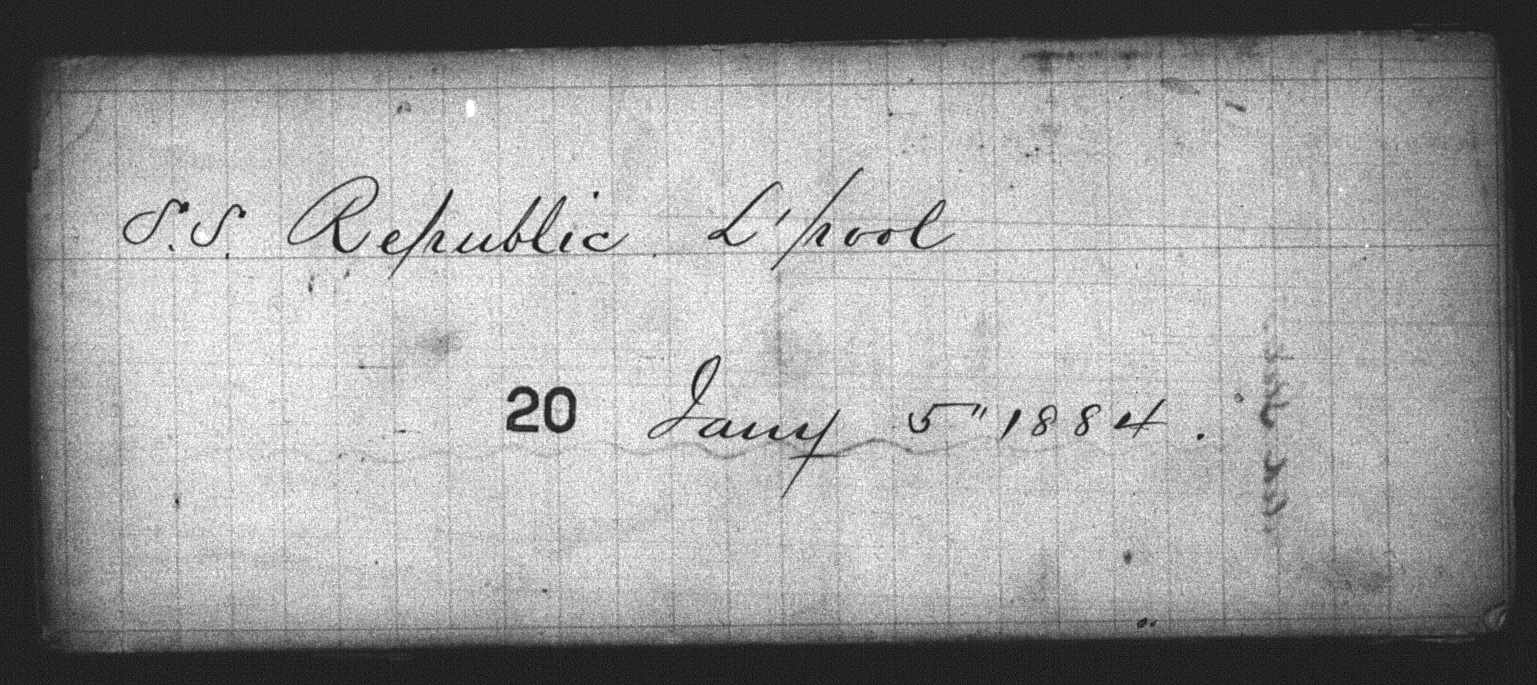 S.S. Republic L'pool
20 Jany 5" 1884.